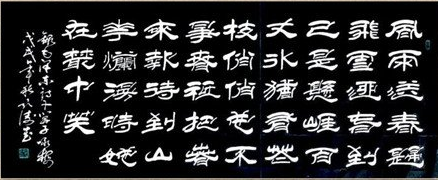 風雨送春歸
飛雪迎春到
已是懸崖百
丈冰猶有花
枝俏俏也不
爭春祗把春
來報待到山
花爛漫時她
在叢中笑
錄毛澤東詞卜算子咏梅
戊戌年秋